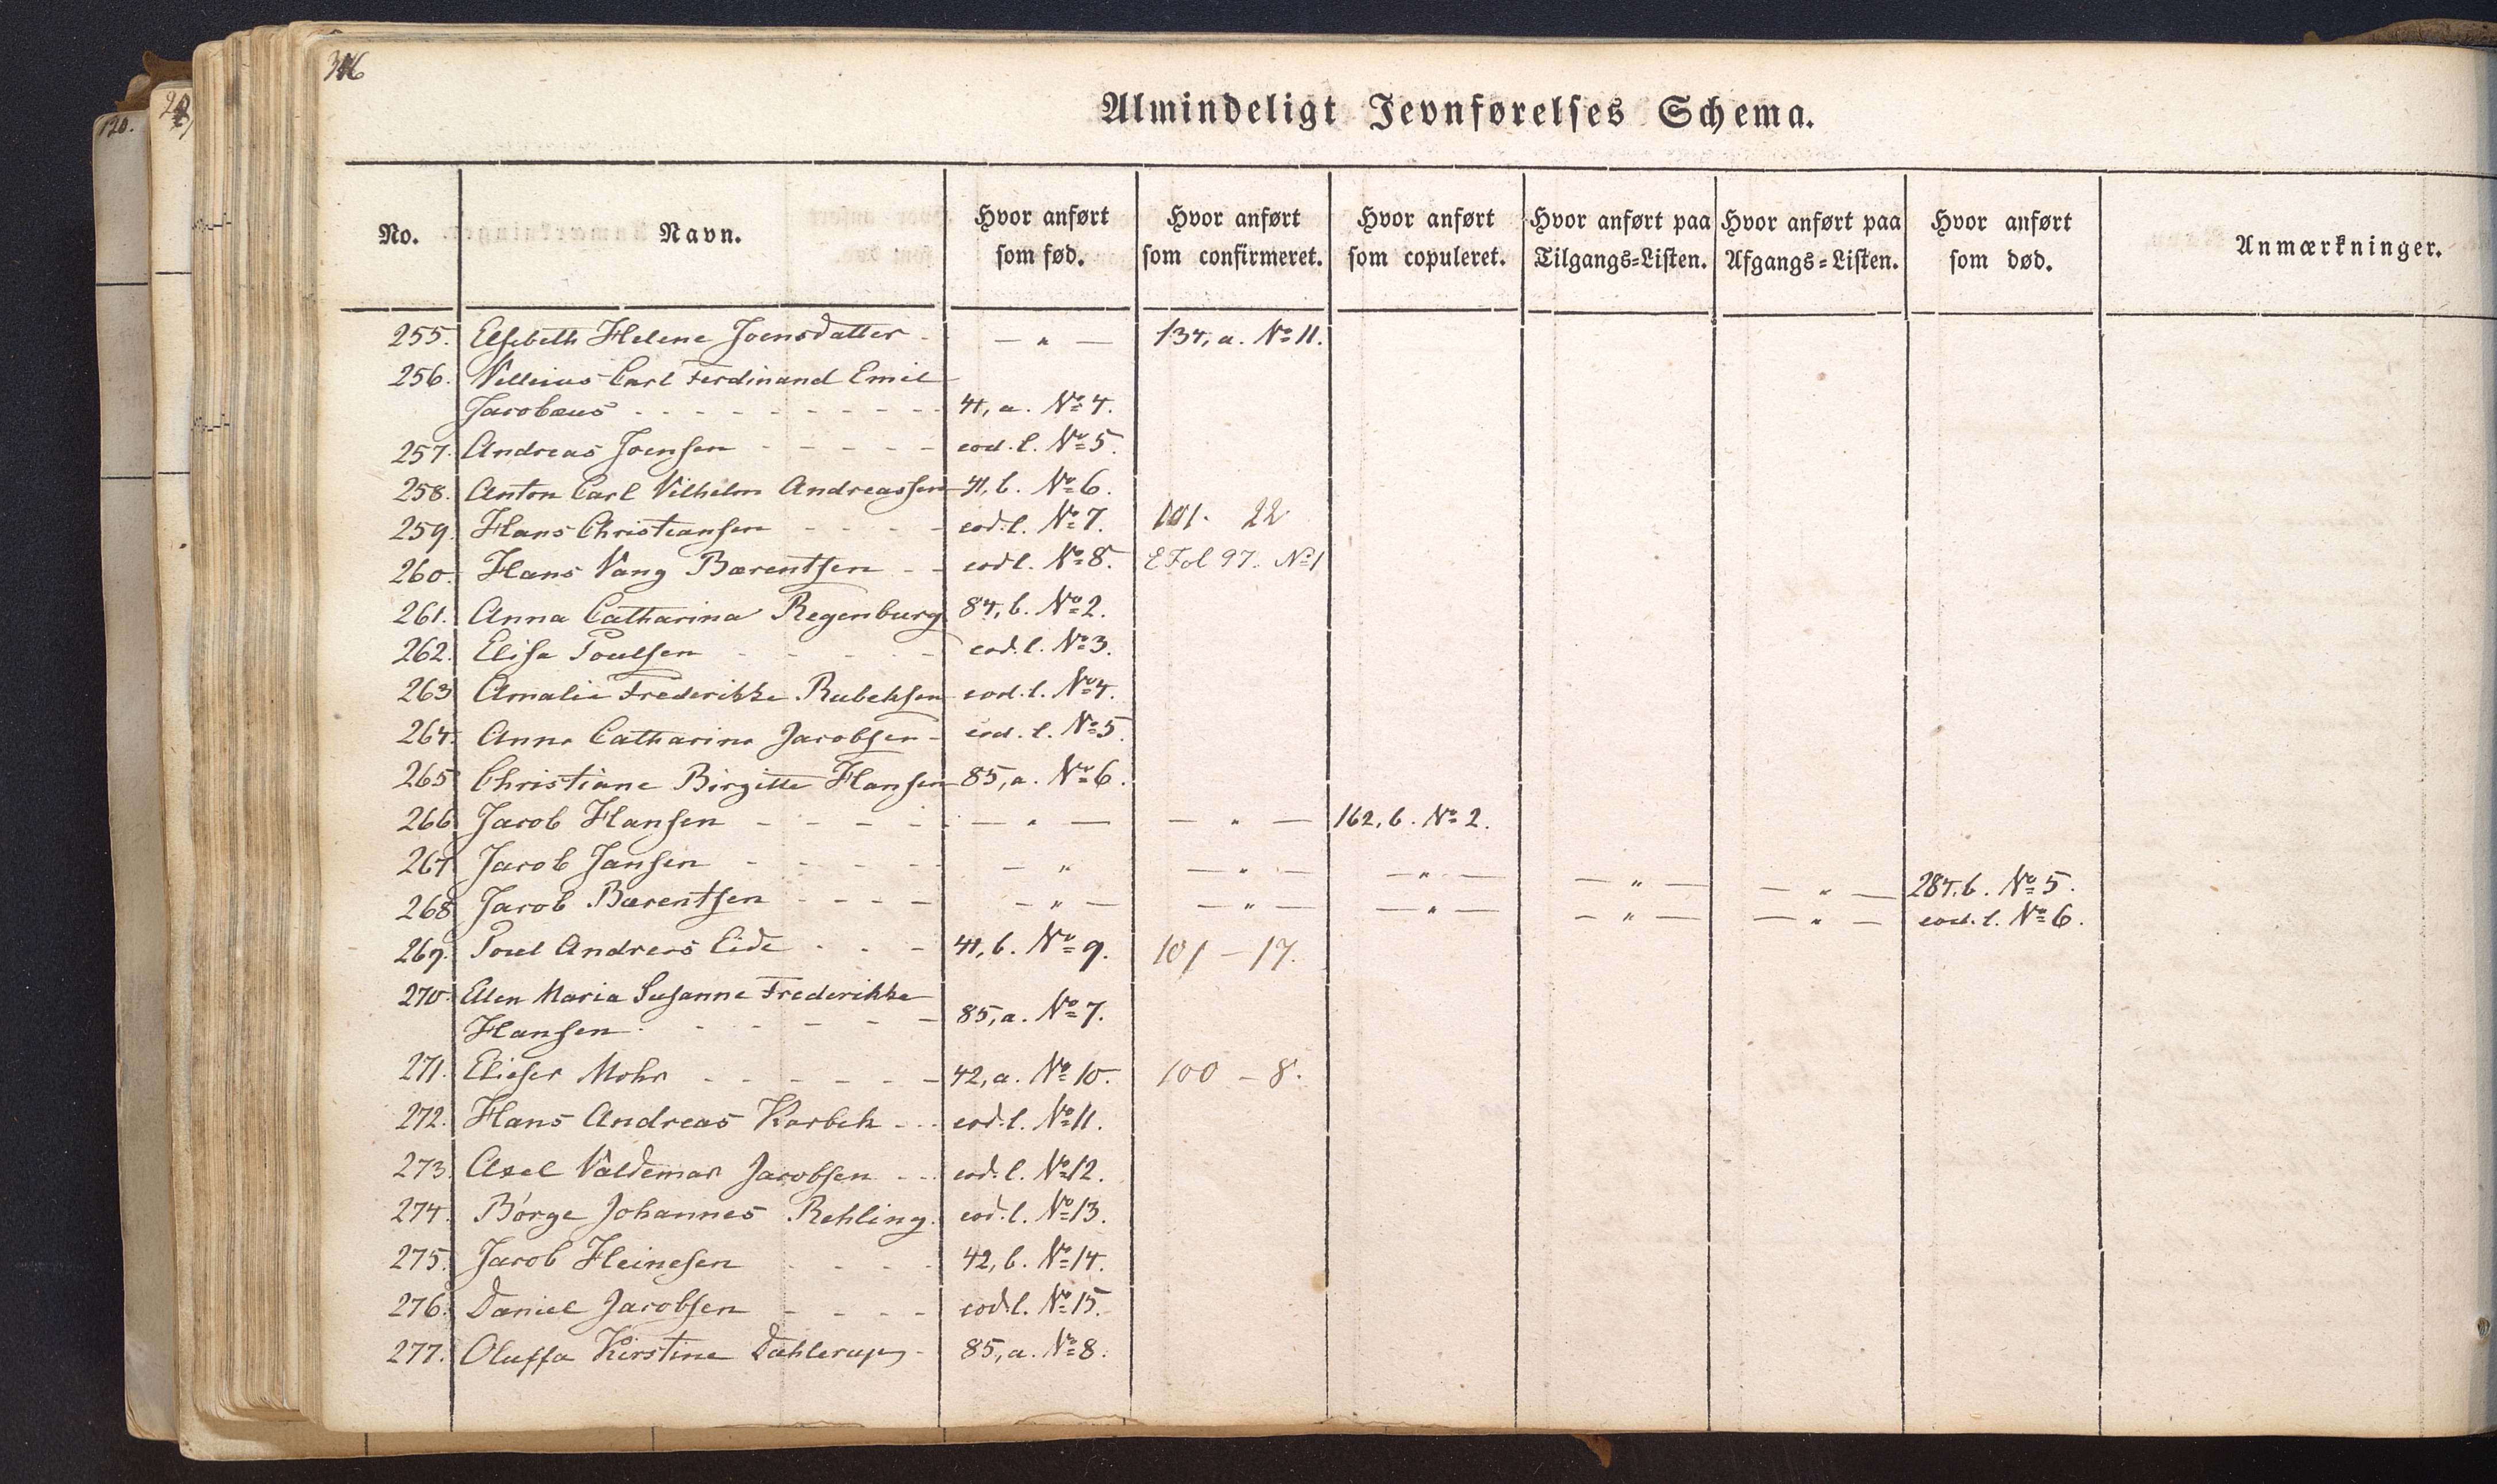 Almindeligt Jevnførelses Schema.
No. Navn. Hvor anført som fød. Hvor anført som confirmeret. Hvor anført som copuleret. Hvor anført paa Tilgangs=Listen. Hvor anført paa Afgangs=Listen. Hvor anført som død. Anmærkninger.
255. Elsebeth Helene Joensdatter - — " — 134, a. No 11.
256. Velleius Carl Ferdinand Emil
Jacobæus - - - - - 41, a. No 4.
257. Andreas Joensen - - - - - eod. l. No 5.
258. Anton Carl Vilhelm Andreassen 41, b. No 6.
259. Hans Christiansen - - - - eod. l. No 7. 101. 22
260. Hans Vang Bærentsen - - eod l. No 8. E Fol 97. No 1
261. Anna Catharina Regenburg 84, b. No 2.
262. Elise Poulsen - - - - - eod. l. No 3.
263 Amalie Frederikke Rubeksen eod. l. No 4.
264. Anna Catharina Jacobsen - eod. l. No 5.
265 Christiane Birgitte Hansen 85, a. No 6.
266 Jacob Hansen - - - - - — " — — " — 162, b. No 2.
267 Jacob Jansen - - - - - — " — " — — " — — " — — " — 284, b. No 5.
268 Jacob Bærentsen - - - - — " — — " — — " — — " — — " — eod. l. No 6.
269. Poul Andreas Eide - - - 41, b. No 9. 101 — 17.
270. Ellen Maria Susanne Frederikke
Hansen - - - - - - 85, a. No 7.
271. Elieser Mohr - - - - - - 42, a. No 10. 100 - 8.
272. Hans Andreas Karbek - - - eod. l. No 11.
273. Axel Valdemar Jacobsen - - - eod. l. No 12.
274. Börge Johannes Rehling. eod. l. No 13.
275. Jacob Heinesen - - - - 42, b. No 14.
276. Daniel Jacobsen - - - - eod. l. No 15.
277. Oluffa Kirstine Dahlerup - 85, a. No 8.
120.